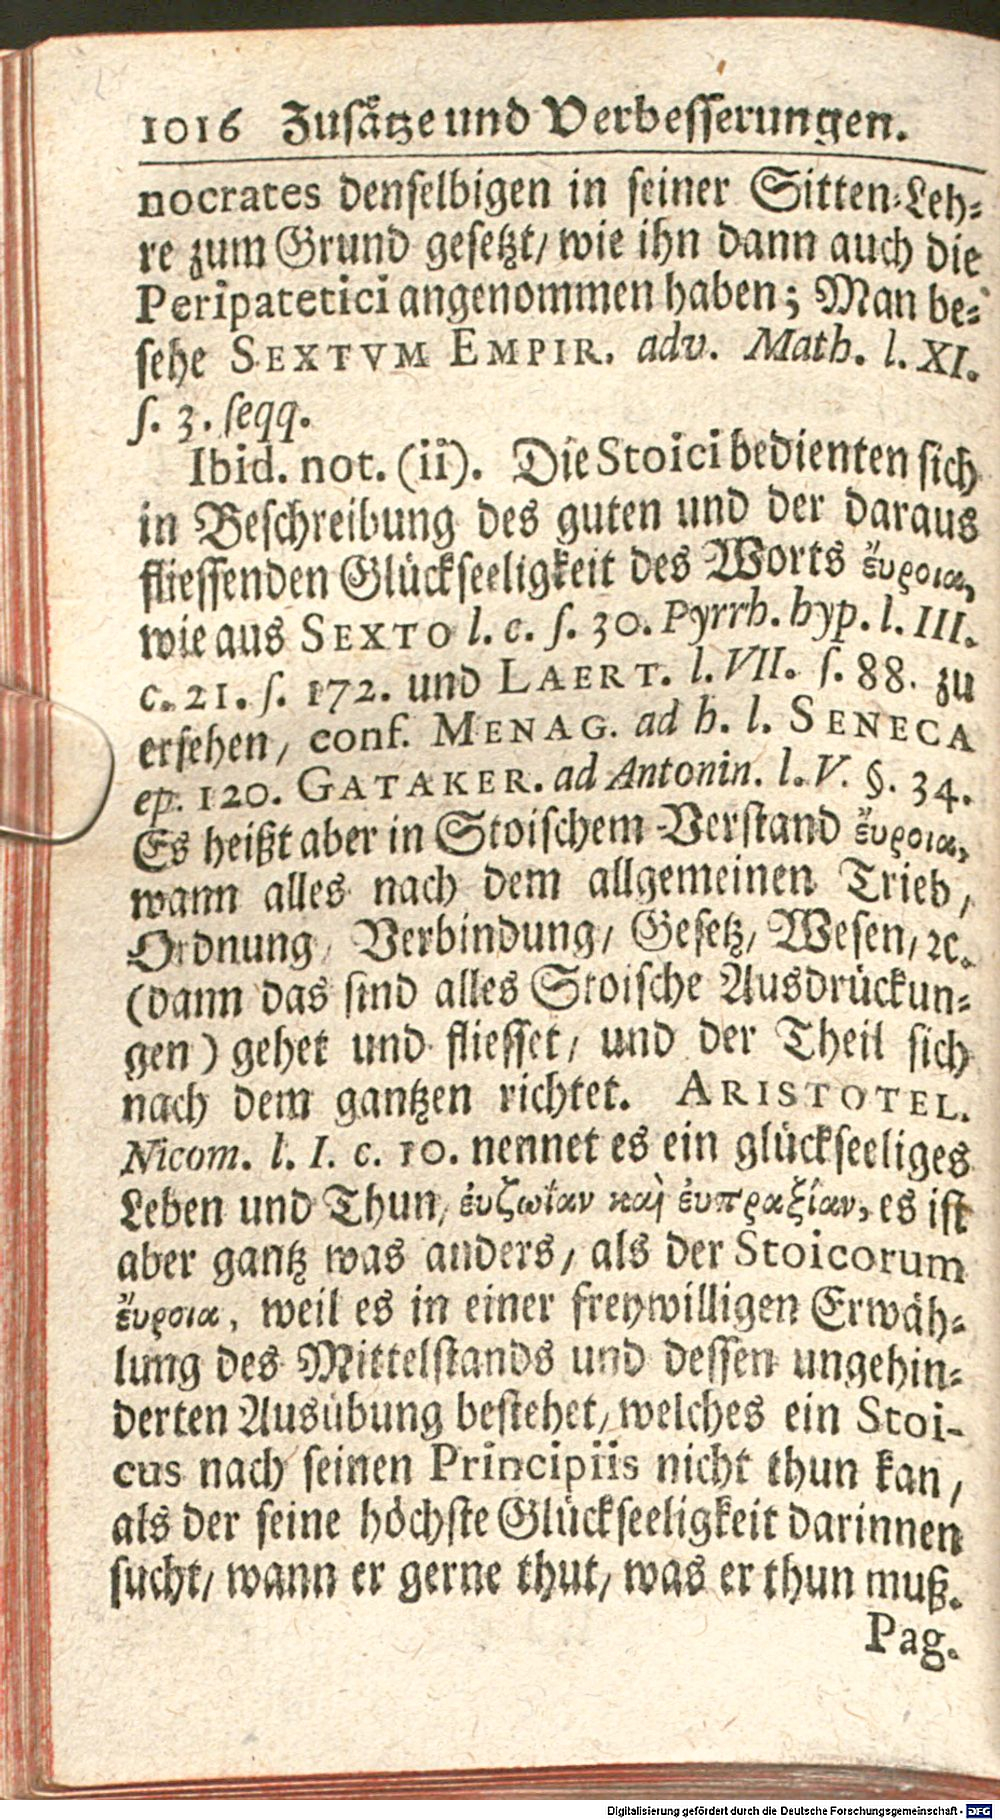 1016 Zusätze und Verbesserungen.
nocrates denselbigen in seiner Sitten-Leh-
re zum Grund gesetzt/ wie ihn dann auch die
Peripatetici angenommen haben; Man be-
sehe SEXTVM EMPIR. adv. Math. l. XI.
s. 3. seqq.
Ibid. not. (ii). Die Stoici bedienten sich
in Beschreibung des guten und der daraus
fliessenden Glückseeligkeit des Worts ἔυροια,
wie aus SEXTO l. c. s. 30. Pyrrh. hyp. l. III.
c. 21. s. 172. und LAERT. l. VII. s. 88. zu
ersehen/ conf. MENAG. ad h. l. SENECA
ep. 120. GATAKER. ad Antonin. l. V. §. 34.
Es heißt aber in Stoischem Verstand ἔυροια,
wann alles nach dem allgemeinen Trieb/
Ordnung/ Verbindung/ Gesetz/ Wesen/ ꝛc.
(dann das sind alles Stoische Ausdrückun-
gen) gehet und fliesset/ und der Theil sich
nach dem gantzen richtet. ARISTOTEL.
Nicom. l. I. c. 10. nennet es ein glückseeliges
Leben und Thun/ ἐυζωίαν καὶ ἐυπραξίαν, es ist
aber gantz was anders/ als der Stoicorum
ἔυροια, weil es in einer freywilligen Erwäh-
lung des Mittelstands und dessen ungehin-
derten Ausübung bestehet/ welches ein Stoi-
cus nach seinen Principiis nicht thun kan/
als der seine höchste Glückseeligkeit darinnen
sucht/ wann er gerne thut/ was er thun muß.
Pag.
Digitalisierung gefördert durch die Deutsche Forschungsgemeinschaft - DFG